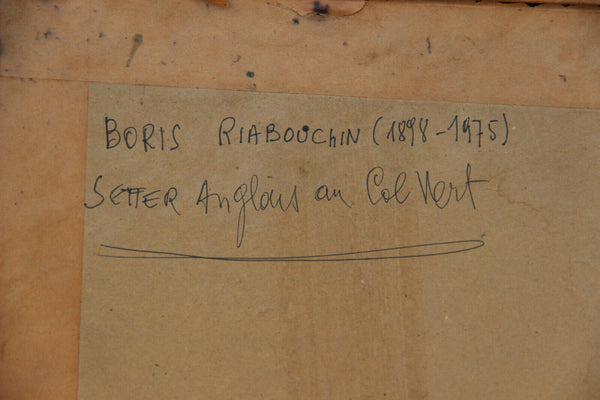 BORIS RIABOUCHIN (1898-1975)
SETTER Anglais au Col Vert